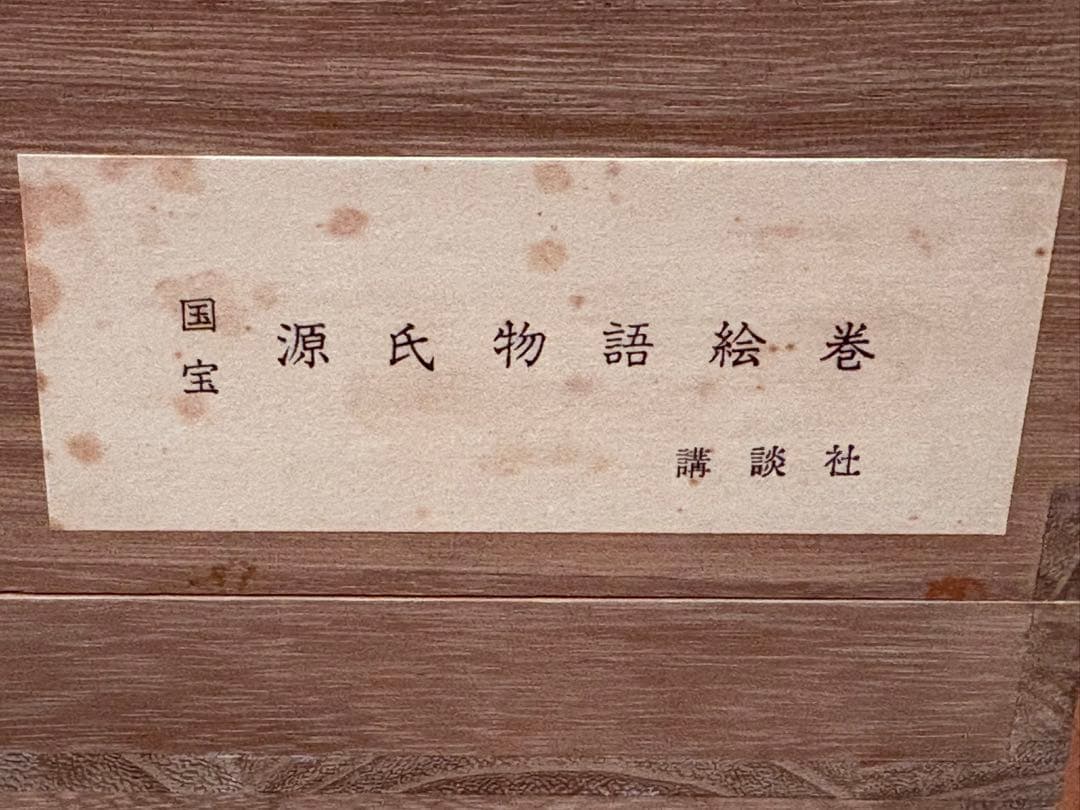 国宝 源氏物語絵巻
講談社